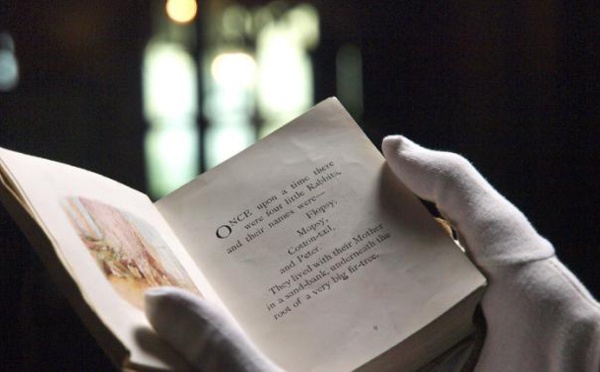 ONCE upon a time there
were four little Rabbits,
and their names were—
Flopsy,
Mopsy,
Cotton-tail,
and Peter.
They lived with their Mother
in a sand-bank, underneath the
root of a very big fir-tree.